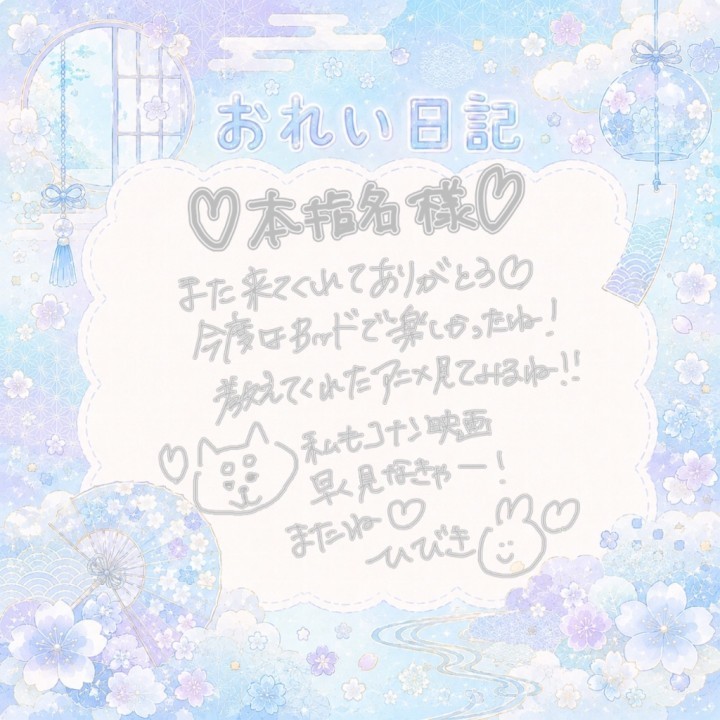 おれい日記
♡本指名様♡
また来てくれてありがとう♡
今度はBッドで楽しかったね!
教えてくれたアニメ見てみるね!!
私もコナン映画
早く見なきゃー!
またね♡
ひびき